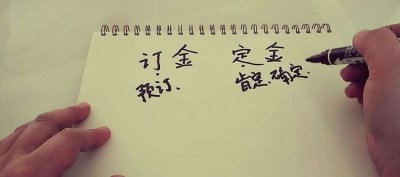 订金 定金
预订、 肯定、确定、